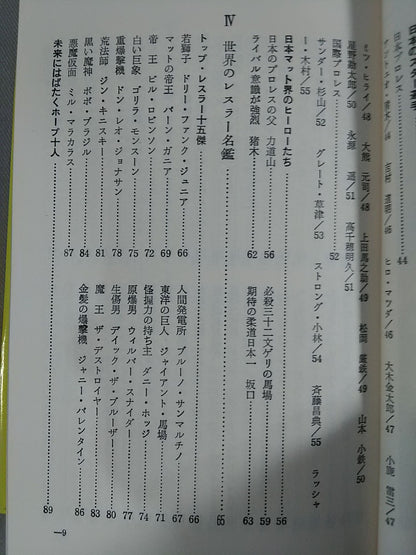 日本プロレス……44
吉村 道明／46 ヒロ・マツダ／46 大木金太郎／47 小鹿 雷三／47
ミツ・ヒライ／48 大熊 元司／48 上田馬之助／49 松岡 巌鉄／49 山本 小鉄／50
星野勘太郎／50 永源 遥／51 高千穂明久／51
国際プロレス……52
サンダー・杉山／52 グレート・草津／53 ストロング・小林／54 斉藤昌典／55 ラッシャ
ー・木村／55
日本マット界のヒーローたち……56
日本のプロレスの父 力道山……56 必殺三十二文ゲリの馬場……59
ライバル意識が強烈 猪木……62 期待の柔道日本一 坂口……63
Ⅳ 世界のレスラー名鑑……65
トップ・レスラー十五傑……66
若獅子 ドリー・ファンク・ジュニア……66 人間発電所 ブルーノ・サンマルチノ……67
マットの帝王 バーン・ガニア……69 東洋の巨人 ジャイアント・馬場……71
帝王 ビル・ロビンソン……72 怪握力の持ち主 ダニー・ホッジ……74
白い巨象 ゴリラ・モンスーン……75 原爆男 ウィルバー・スナイダー……77
重爆撃機 ドン・レオ・ジョナサン……78 生傷男 ディック・ザ・ブルーザー……80
荒法師 ジン・キニスキー……81 魔王 ザ・デストロイヤー……83
黒い魔神 ボボ・ブラジル……84 金髪の爆撃機 ジャニー・バレンタイン……86
悪魔仮面 ミル・マラカラス……87
未来にはばたくホープ十人……89
—9